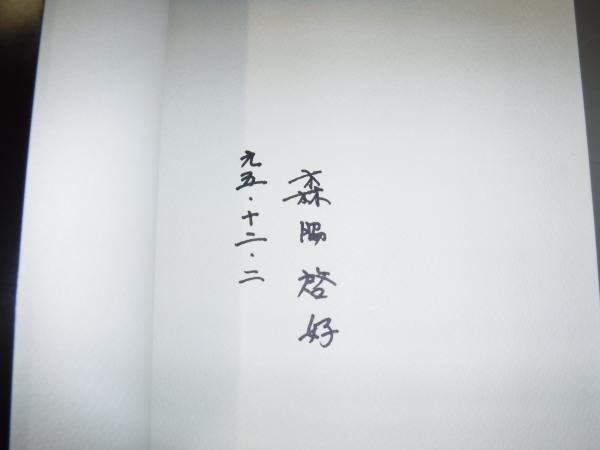 森脇啓好
九五・十二・二